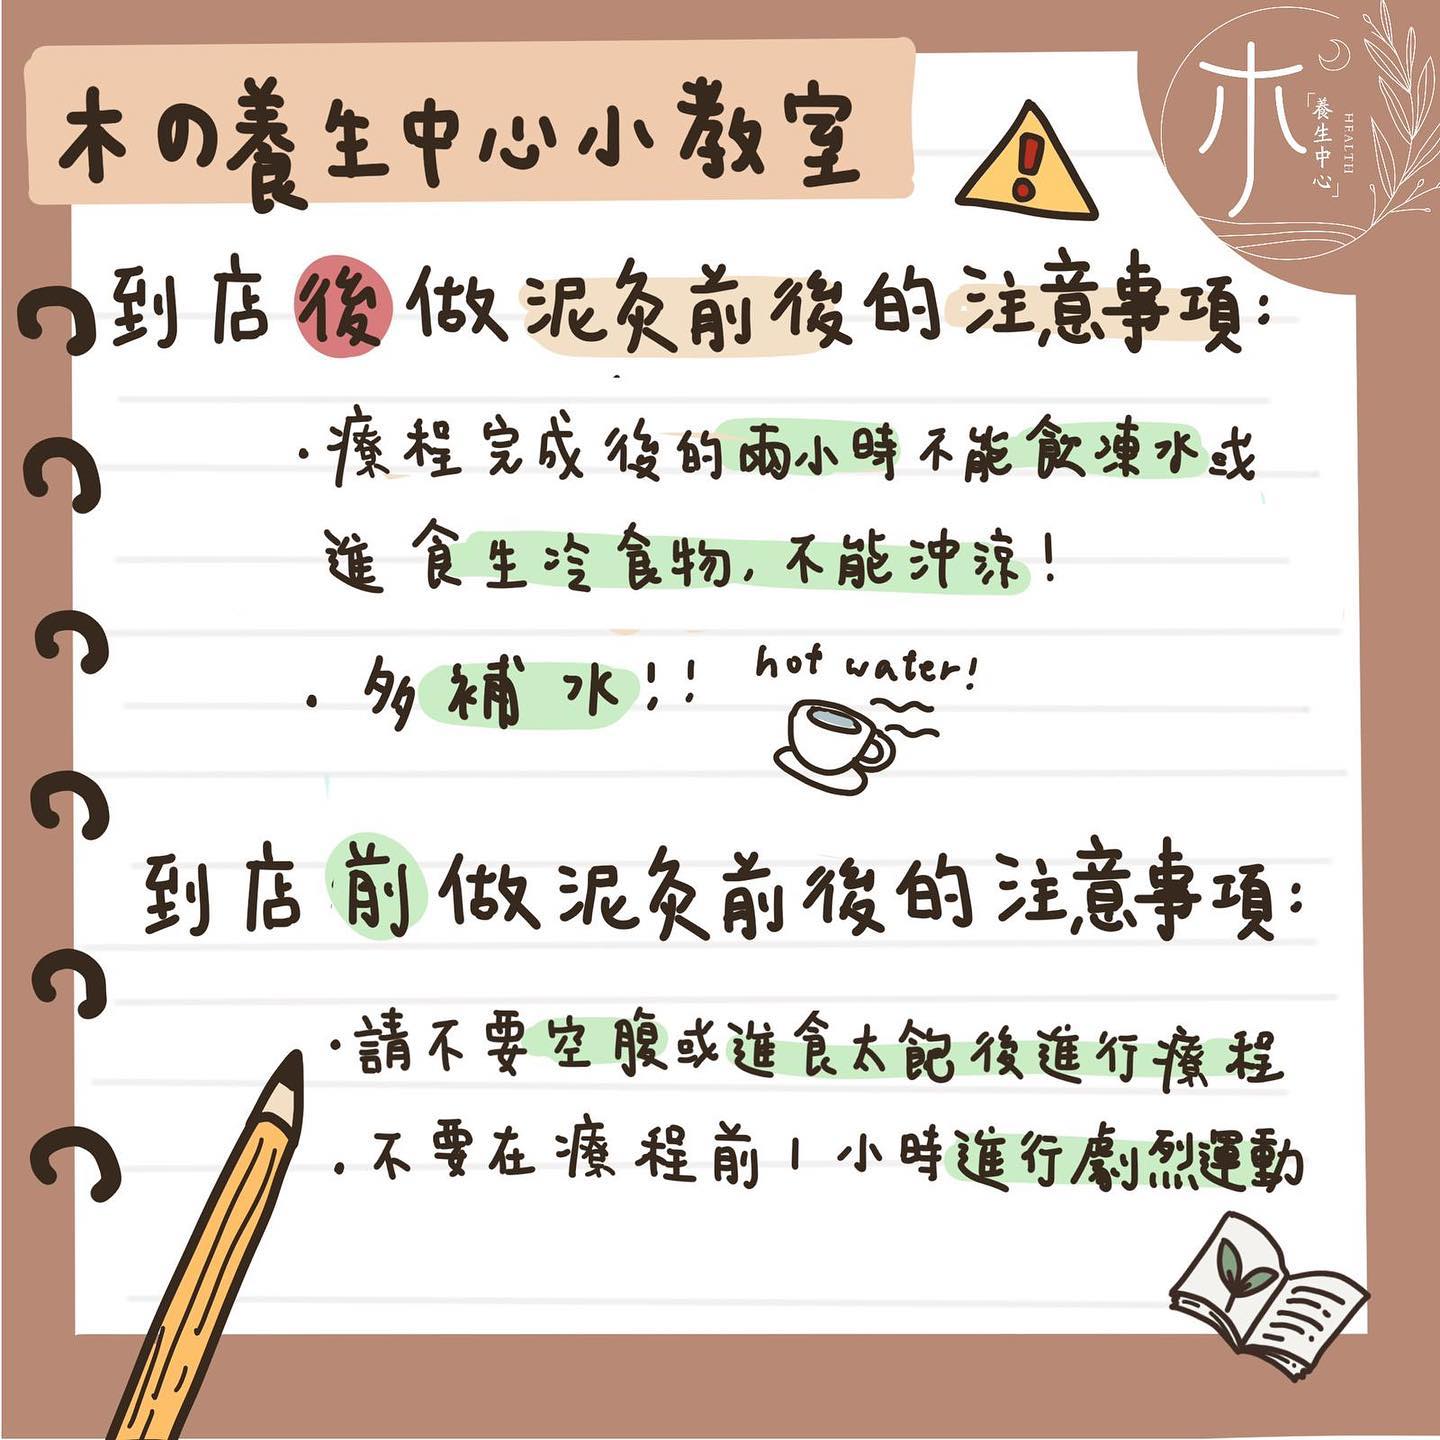 木の養生中心小教室
木
「養生中心」
HEALTH
到店後做泥灸前後的注意事項:
·療程完成後的兩小時不能飲凍水或
進食生冷食物,不能沖涼!
·多補水!!
hot water!
到店前做泥灸前後的注意事項:
·請不要空腹或進食太飽後進行療程
·不要在療程前1小時進行劇烈運動